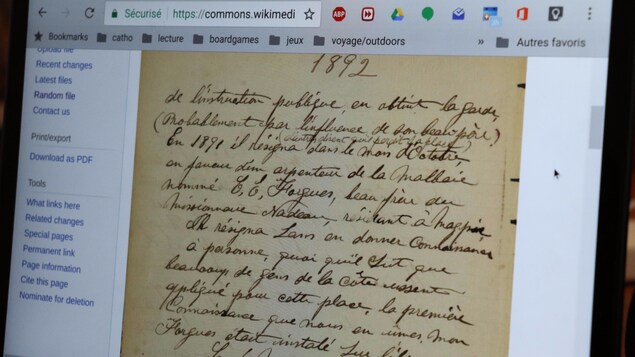 Sécurisé https://commons.wikimedi
ABP
catho lecture boardgames jeux voyage/outdoors » Autres favoris
Upload file
Recent changes
Latest files
Random file
Contact us
Print/export
Download as PDF
Tools
What links here
Related changes
Special pages
Permanent link
Page information
Cite this page
Nominate for deletion
1892
de l'instruction publique, en obtint la garde,
(Probablement par l'influence de son beau père)
En 1891 il résigna dans le mois d'Octobre,
en faveur d'un arpenteur de la Malbaie
nommé Forgues, beau frère du
missionnaire Nadeau, résidant à Magpie,
résigna sans en donner connaissance
à personne, quoi qu'il sut que
beaucoup de gens de la Côte eussent
appliqué pour cette place, la première
connaissance que nous en eumes, mon
Forgues etait installé sur